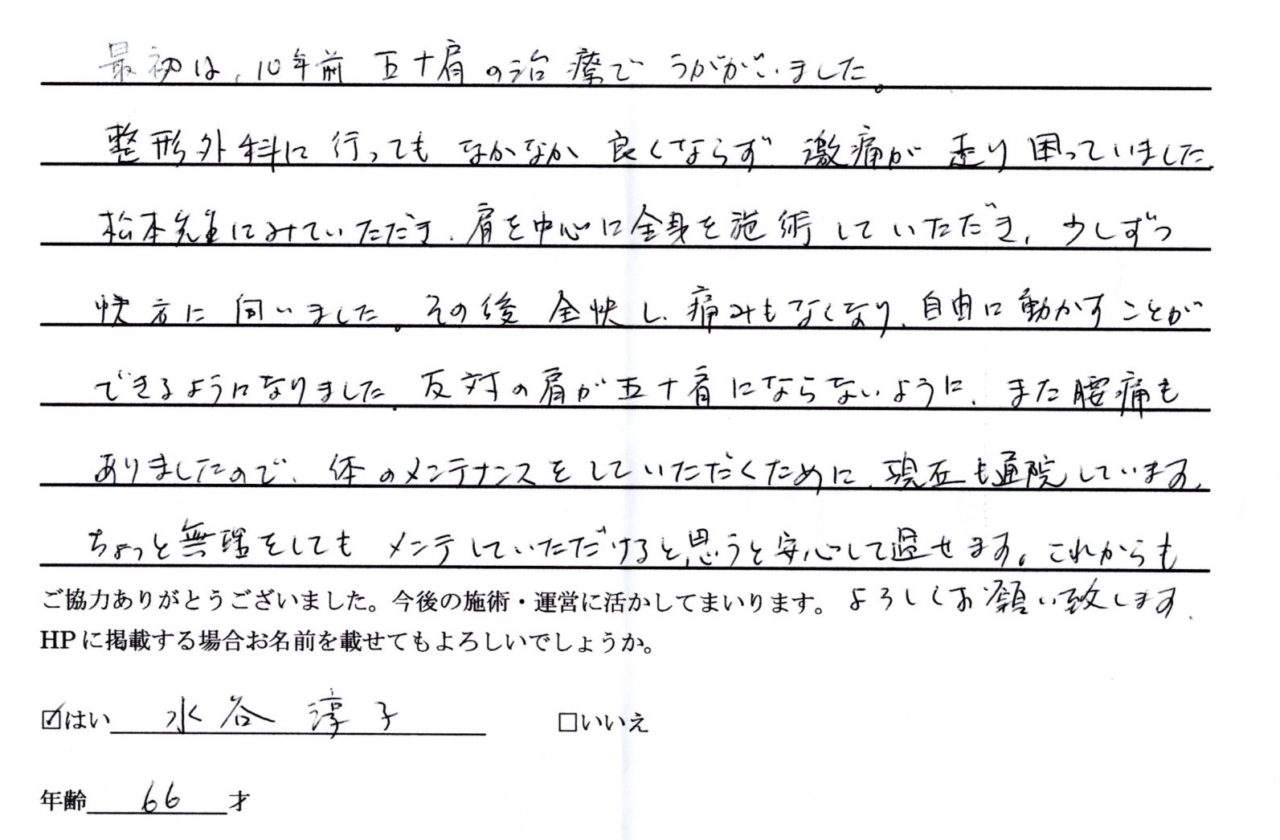 最初は、10年前 五十肩の治療で うががいました。
整形外科に行っても なかなか 良くならず 激痛が 走り 困っていました.
松本先生にみていただき、肩を中心に全身を施術していただき、少しずつ
快方に 伺いました。その後 全快し、痛みもなくなり、自由に動かすことが
できるようになりました。反対の肩が五十肩にならないように、また腰痛も
ありましたので、体のメンテナンスをしていただくために、現在も通院しています。
ちょっと無理をしても メンテしていただけると思うと安心して過せます。これからも
よろしくお願い致します.
ご協力ありがとうございました。今後の施術・運営に活かしてまいります。
HPに掲載する場合お名前を載せてもよろしいでしょうか。
☑はい 水谷 淳子 □いいえ
年齢 66 才